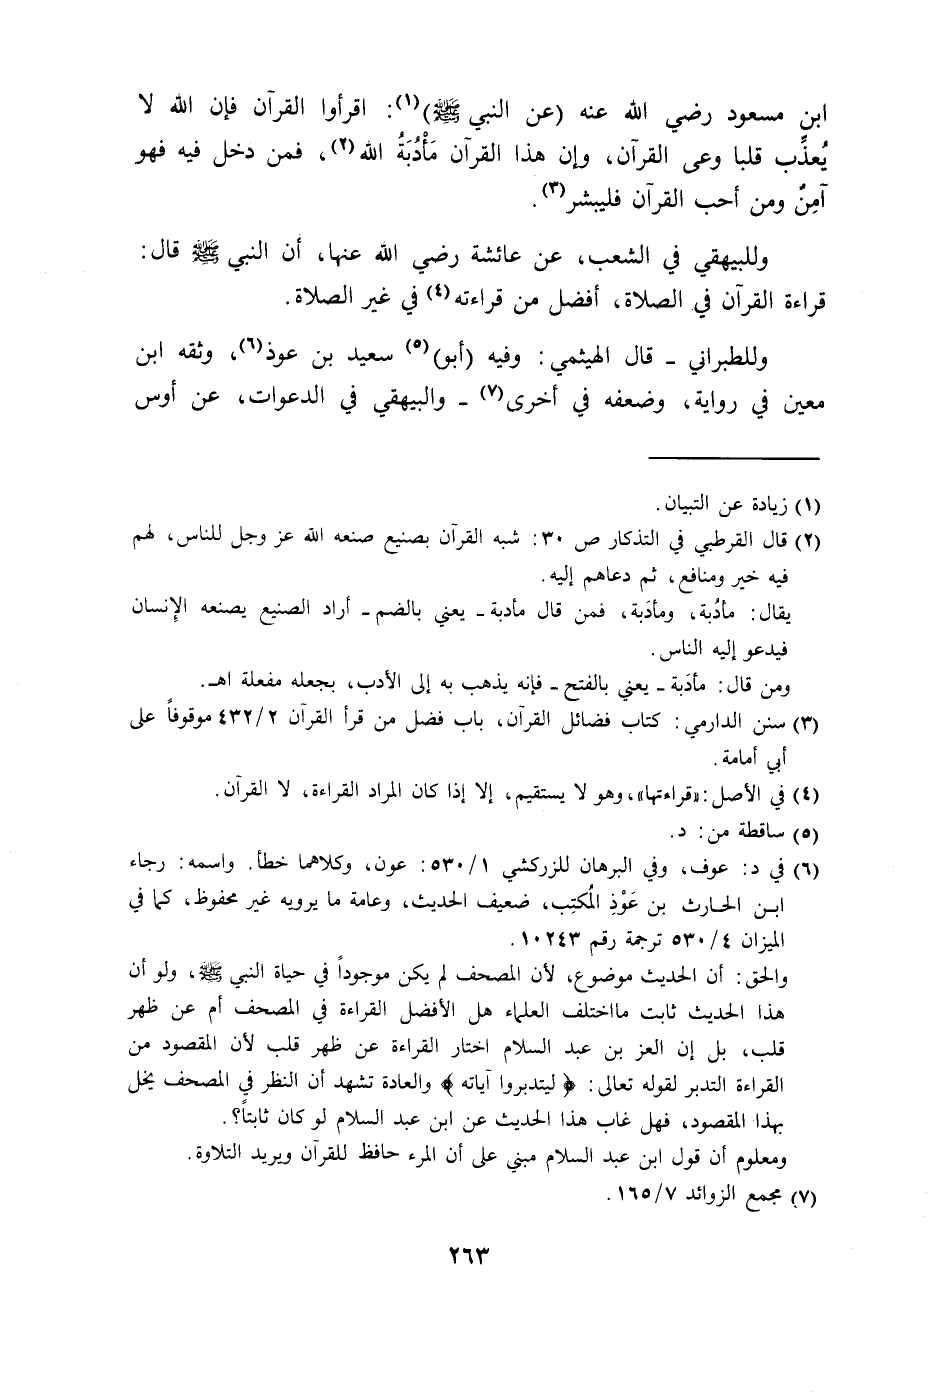 ابن مسعود رضي الله عنه (عن النبي ﷺ)(١): اقرأوا القرآن فإن الله لا
يُعذِّب قلبا وعى القرآن، وإن هذا القرآن مَأْدُبَةُ الله(٢)، فمن دخل فيه فهو
آمِنٌ ومن أحب القرآن فليبشر(٣).
وللبيهقي في الشعب، عن عائشة رضي الله عنها، أن النبي ﷺ قال:
قراءة القرآن في الصلاة، أفضل من قراءته(٤) في غير الصلاة.
وللطبراني ـ قال الهيثمي: وفيه (أبو)(٥) سعيد بن عوذ(٦)، وثقه ابن
معين في رواية، وضعفه في أخرى(٧) ـ والبيهقي في الدعوات، عن أوس
(١) زيادة عن التبيان.
(٢) قال القرطبي في التذكار ص ٣٠: شبه القرآن بصنيع صنعه الله عز وجل للناس، لهم
فيه خير ومنافع، ثم دعاهم إليه.
يقال: مأدُبة، ومأدَبة، فمن قال مأدبة ـ يعني بالضم ـ أراد الصنيع يصنعه الإِنسان
فيدعو إليه الناس.
ومن قال: مأدَبة ـ يعني بالفتح ـ فإنه يذهب به إلى الأدب، بجعله مفعلة اهـ.
(٣) سنن الدارمي: كتاب فضائل القرآن، باب فضل من قرأ القرآن ٤٣٢/٢ موقوفاً على
أبي أمامة.
(٤) في الأصل: «قراءتها»، وهو لا يستقيم، إلا إذا كان المراد القراءة، لا القرآن.
(٥) ساقطة من: د.
(٦) في د: عوف، وفي البرهان للزركشي ٥٣٠/١: عون، وكلاهما خطأ. واسمه: رجاء
ابـن الحـارث بن عَوْذِ المُكتِب، ضعيف الحديث، وعامة ما يرويه غير محفوظ، كما في
الميزان ٥٣٠/٤ ترجمة رقم ١٠٢٤٣.
والحق: أن الحديث موضوع، لأن المصحف لم يكن موجوداً في حياة النبي ﷺ، ولو أن
هذا الحديث ثابت مااختلف العلماء هل الأفضل القراءة في المصحف أم عن ظهر
قلب، بل إن العز بن عبد السلام اختار القراءة عن ظهر قلب لأن المقصود من
القراءة التدبر لقوله تعالى: ﴿ ليتدبروا آياته ﴾ والعادة تشهد أن النظر في المصحف يخل
بهذا المقصود، فهل غاب هذا الحديث عن ابن عبد السلام لو كان ثابتاً؟.
ومعلوم أن قول ابن عبد السلام مبني على أن المرء حافظ للقرآن ويريد التلاوة.
(٧) مجمع الزوائد ١٦٥/٧.
٢٦٣